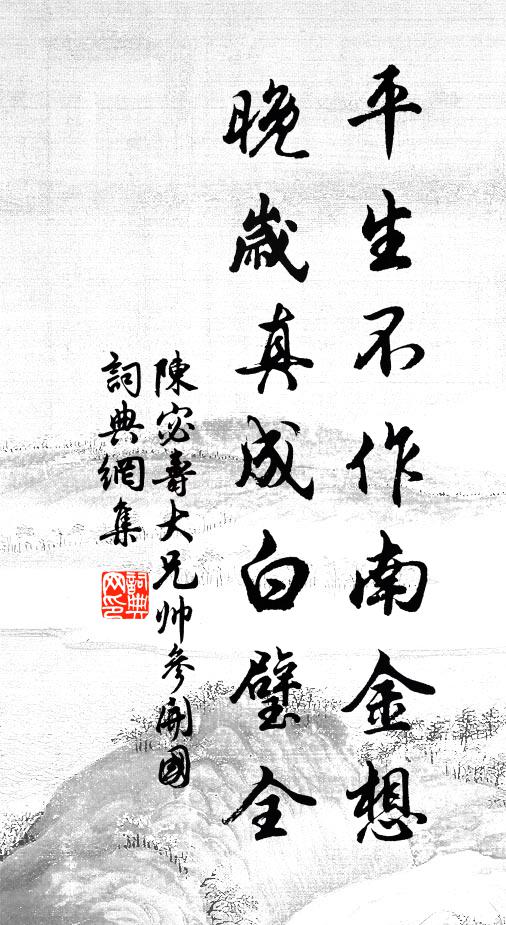 平生不作南金想
晚歲真成白璧全
陳宓壽大兄帅參開國
詞典網集
詞典网印